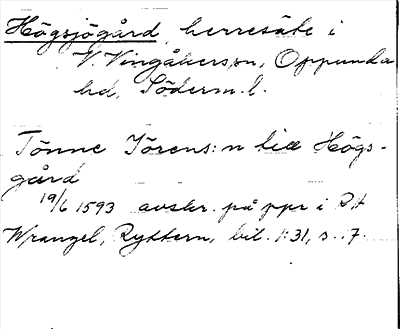 Högsjögård, herresäte i
V Vingåkers sn, Oppunda
hd, Söderm. l.
Tönne Jörens:n till Högs-
gård
19/6 1593 avskr. på ppr i RA
Wrangel, Ryttern, bil. 1:31, s. 7.